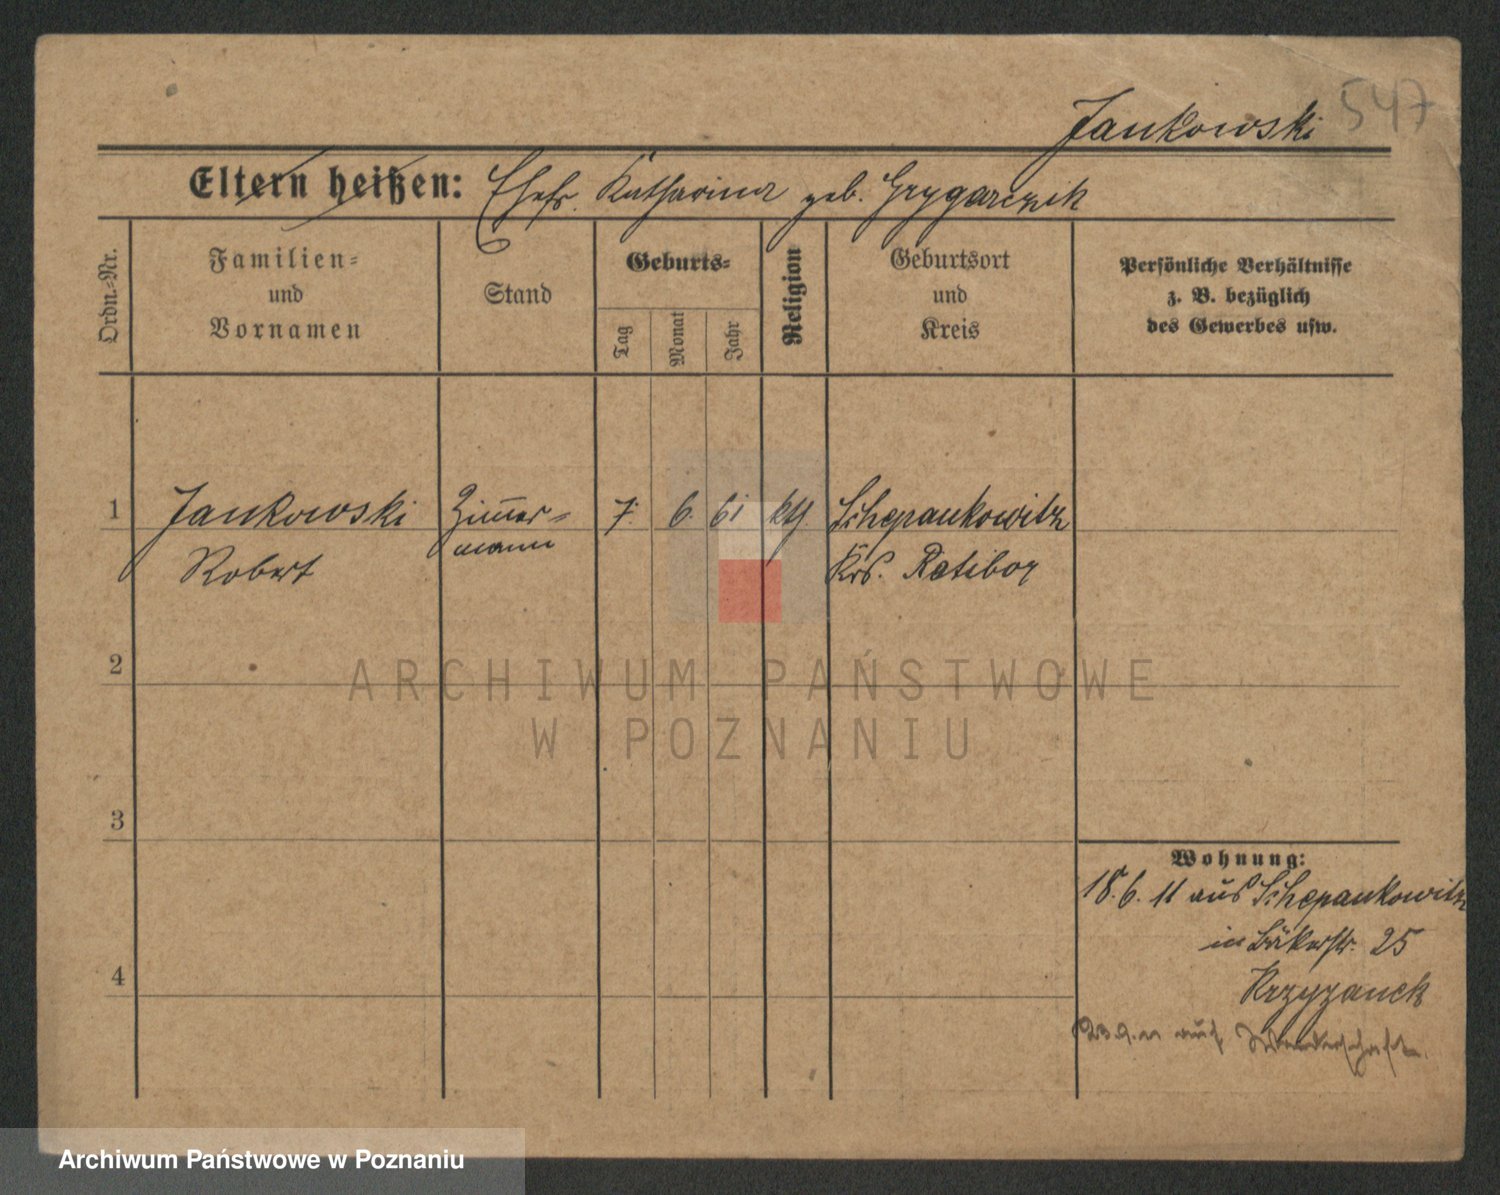 547
Jankowski
Eltern heißen: Ehefr. Katharina geb. Grygarczik
Ordn.-Nr.
Familien-
und
Vornamen
Stand
Geburts-
Tag
Monat
Jahr
Religion
Geburtsort
und
Kreis
Persönliche Verhältnisse
z. B. bezüglich
des Gewerbes usw.
1 Jankowski Zimmer- 7. 6. 61 kth. Schepankowitz
Robert mann Krs. Ratibor
2
ARCHIWUM PAŃSTWOWE
W POZNANIU
3
Wohnung:
18.6.11 aus Schepankowitz
in Bäkerstr. 25
4
Krzyzanek
auf Wanderschaft.
Archiwum Państwowe w Poznaniu